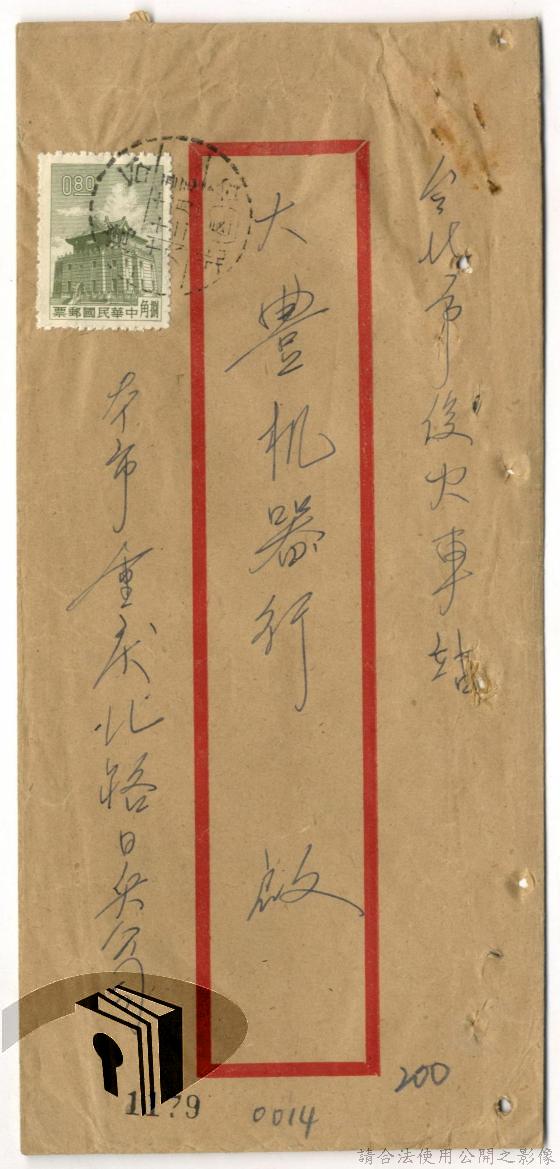 台北市後火車站
大豊机器行 啟
本市重庆北路日英公司
0.80
角捌 票郵國民華中
1179
0014
200
請合法使用公開之影像